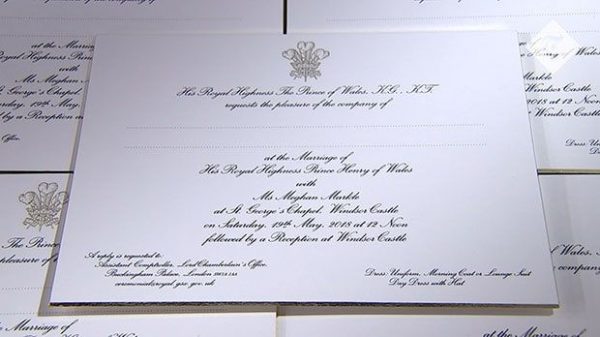 His Royal Highness The Prince of Wales, K.G., K.T.
requests the pleasure of the company of
at the Marriage of
His Royal Highness Prince Henry of Wales
with
Ms Meghan Markle
at St George's Chapel, Windsor Castle
on Saturday, 19th May, 2018 at 12 Noon
followed by a Reception at Windsor Castle
A reply is requested to:
Assistant Comptroller, Lord Chamberlain's Office,
Buckingham Palace, London SW1A 1AA
ceremonial@royal.gsx.gov.uk
Dress: Uniform, Morning Coat or Lounge Suit
Day Dress with Hat
at the Marriage of
Highness Prince Henry
with
Ms Meghan Mar
George's Chapel, W
Saturday, 19th May,
ed by a Reception a
Office,
Henry of Wales
Markle
Windsor Castle
2018 at 12 Noon
Windsor Castle
Dress: Uniform, Morning
Day Dress
His Royal Highness The Prin
pleasure of
at the Marriage of
of Wales,
company of
at the Marriage of